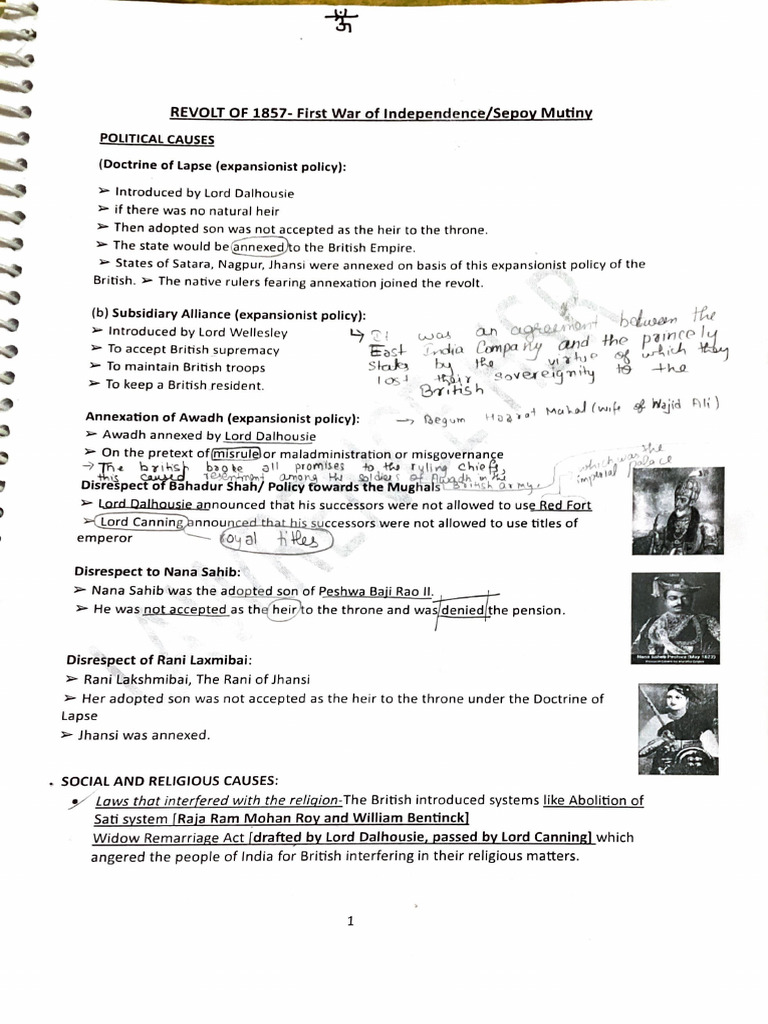 ॐ
REVOLT OF 1857- First War of Independence/Sepoy Mutiny
POLITICAL CAUSES
(Doctrine of Lapse (expansionist policy):
➢ Introduced by Lord Dalhousie
➢ if there was no natural heir
➢ Then adopted son was not accepted as the heir to the throne.
➢ The state would be annexed to the British Empire.
➢ States of Satara, Nagpur, Jhansi were annexed on basis of this expansionist policy of the
British. ➢ The native rulers fearing annexation joined the revolt.
(b) Subsidiary Alliance (expansionist policy):
➢ Introduced by Lord Wellesley
➢ To accept British supremacy
➢ To maintain British troops
➢ To keep a British resident.
↳ It was an agreement between the
East India Company and the princely
states by the virtue of which they
lost their sovereignity to the
British
Annexation of Awadh (expansionist policy):
→ Begum Hazrat Mahal (wife of Wajid Ali)
➢ Awadh annexed by Lord Dalhousie
➢ On the pretext of misrule or maladministration or misgovernance
→ The british broke all promises to the ruling chiefs,
this caused resentment among the soldiers of Awadh in the
British army.
which was the
imperial palace
Disrespect of Bahadur Shah/ Policy towards the Mughals
➢ Lord Dalhousie announced that his successors were not allowed to use Red Fort
➢ Lord Canning announced that his successors were not allowed to use titles of
emperor
royal titles
Disrespect to Nana Sahib:
➢ Nana Sahib was the adopted son of Peshwa Baji Rao II.
➢ He was not accepted as the heir to the throne and was denied the pension.
Nana Saheb Peshwa (May 1823)
Disrespect of Rani Laxmibai:
➢ Rani Lakshmibai, The Rani of Jhansi
➢ Her adopted son was not accepted as the heir to the throne under the Doctrine of
Lapse
➢ Jhansi was annexed.
SOCIAL AND RELIGIOUS CAUSES:
• Laws that interfered with the religion-The British introduced systems like Abolition of
Sati system [Raja Ram Mohan Roy and William Bentinck]
Widow Remarriage Act [drafted by Lord Dalhousie, passed by Lord Canning] which
angered the people of India for British interfering in their religious matters.
1